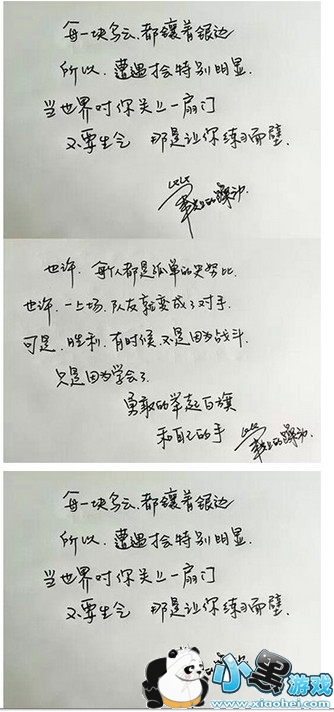 每一块乌云，都镶着银边
所以，遭遇才会特别明显.
当世界对你关上一扇门
不要生气 那是让你练习面壁.
也许，每个人都是孤单的史努比
也许，一上场，队友就变成了对手
可是，胜利，有时候，不是因为战斗
只是因为学会了
勇敢的举起白旗
和自己的手
每一块乌云，都镶着银边
所以，遭遇才会特别明显.
当世界对你关上一扇门
不要生气 那是让你练习面壁.
小黑游戏
www.xiaohei.com